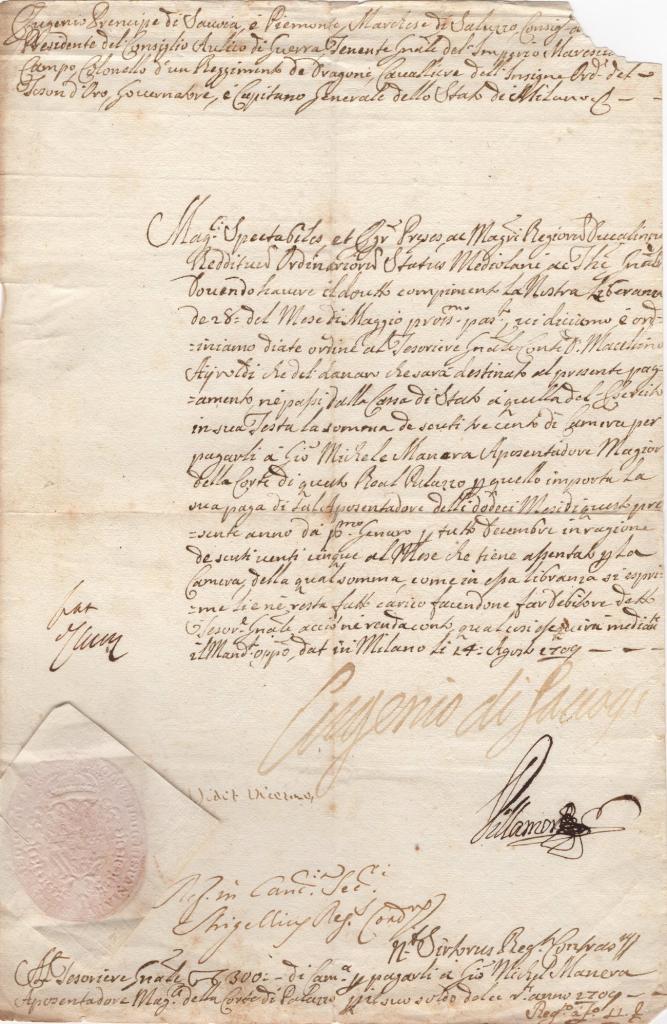 Eugenio Prencipe di Savoia, è Piemonte, Marchese di Saluzzo, Consig.
Presidente del Consiglio Aulico di Guerra Tenente Gnale del' Imperio Maresc
Campo, Colonello d'un Reggimento de Dragoni, Cavaliere dell' Insigne Ord.e del
Toson d'Oro, Governatore, è Capitano Generale dello Stato di Milano &
Mag.ci Spectabiles, et Egr. Preses, ac Mag.ri Regiorum Ducalium
Reddituum Ordinariorum Status Mediolani ac The. Gnalis
Dovendo havere il dovuto compimento la Nostra liberanza
de 28. del Mese di Maggio pross.mo pas.to, vi diciamo è ord-
-iniamo diate ordine al Tesoriere Gnale Conte D. Marcellino
Airoldi che del danaro che sarà destinato al presente pag-
-amento ne passi dalla Cassa di Stato à quella del Esercito
in sua Testa la somma de scuti trecento di Camera per
pagarli à Gio. Michele Manera Aposentadore Maggior
della Corte di questo Real Palazzo p quello importa la
sua paga di tal Aposentadore delli dodeci Mesi di questo pre-
-sente anno da p.mo Genaro p tutto Decembre in ragione
de scuti venti cinque al Mese che tiene assentato p la
Camera, della qual somma, come in essa libranza si espri-
-me li ne resta fatto carico facendone far debitore detto
Tesor.e Gnale acciò ne renda conto qual così esequirà mediante
il Mand.o opp.o, dat in Milano li 14. Agosto 1709
Eugenio di Savoy
Vidit
Villamor
Reg. in Canc.ia Sec.
Strigellius Reg.
N.s Sirtorus Reg.
Al Tesoriere Gnale 300 di Cam.a p pagarli à Gio. Michel Manera
Aposentadore Mag.e della Corte di Palazzo p il suo soldo dell' anno 1709
Reg.o